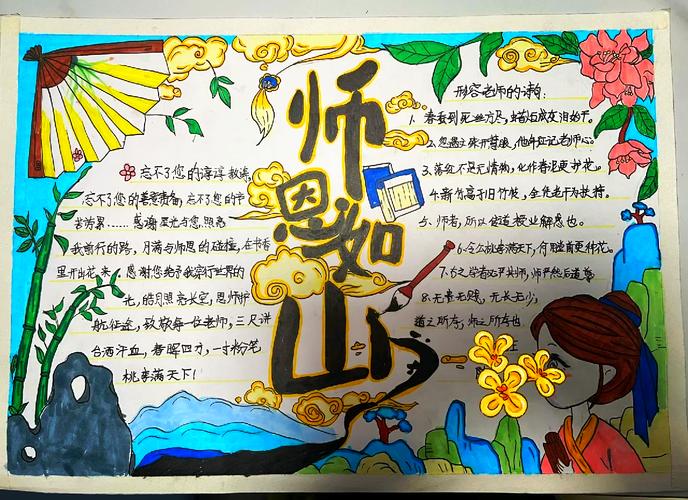 师恩如山
忘不了您的谆谆教诲,
忘不了您的善意责备,忘不了您的节
劳累……感谢星光与您,照亮
我前行的路,月满与师恩的碰撞,在书香
里开出花来,感谢您给予我穿行世界的
光,皓月照亮长空,恩师护
航征途,致敬每一位老师,三尺讲
台洒汗血,春晖四方,一寸粉笔
桃李满天下!
形容老师的诗句:
1、春蚕到死丝方尽,蜡炬成灰泪始干。
2、忽遇文殊开慧眼,他年应记老师心。
3、落红不是无情物,化作春泥更护花。
4、新竹高于旧竹枝,全凭老干为扶持。
5、师者,所以传道授业解惑也。
6、令公桃李满天下,何用堂前更种花。
7、古之学者必严其师,师严然后道尊
8、无贵无贱,无长无少,
道之所存,师之所存也